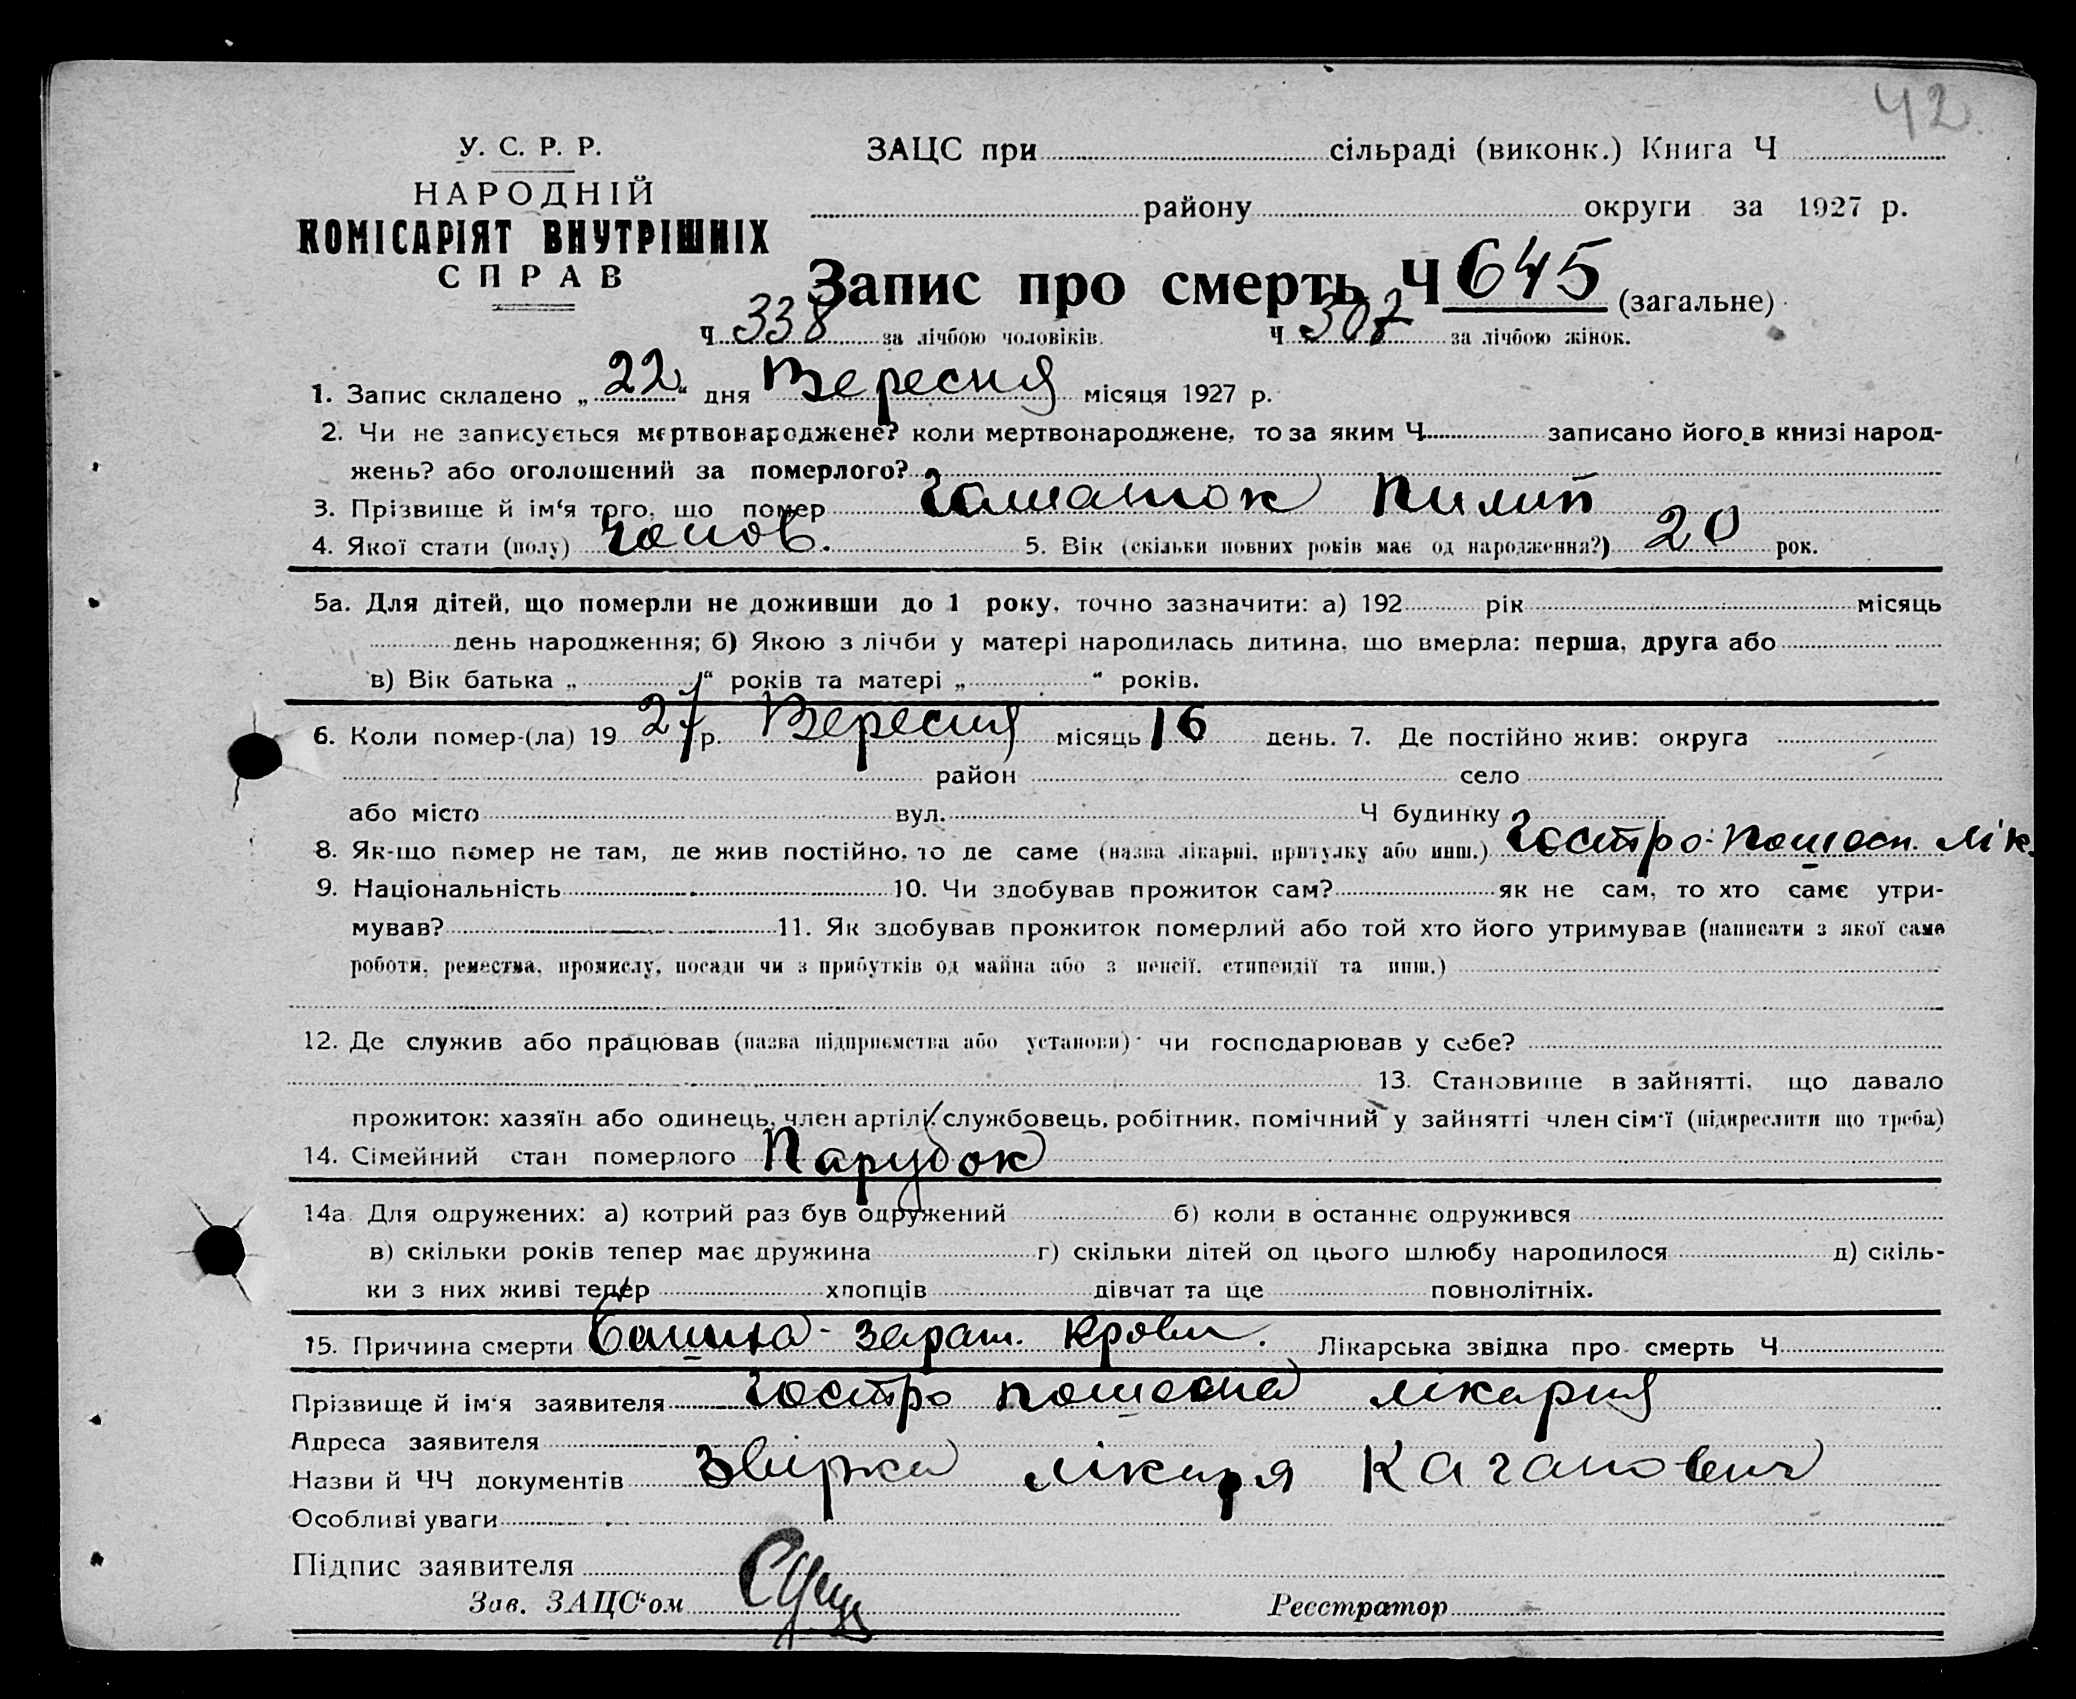 42
У. С. Р. Р.
НАРОДНІЙ
КОМІСАРІЯТ ВНУТРІШНІХ
СПРАВ
ЗАЦС при сільраді (виконк.) Книга Ч
району округи за 1927 р.
Запис про смерть Ч 645 (загальне)
Ч 338 за лічбою чоловіків. Ч 307 за лічбою жінок.
1. Запис складено „22“ дня Вересня місяця 1927 р.
2. Чи не записується мертвонароджене? коли мертвонароджене, то за яким Ч записано його в книзі народ-
жень? або оголошений за померлого?
3. Прізвище й ім‘я того, що помер Пилип
4. Якої стати (полу) 5. Вік (скільки повних років має од народження?) 20 рок.
5а. Для дітей, що померли не доживши до 1 року, точно зазначити: а) 192 рік місяць
день народження; б) Якою з лічби у матері народилась дитина, що вмерла: перша, друга або
в) Вік батька „ “ років та матері „ “ років.
6. Коли помер-(ла) 1927 р. Вересня місяць 16 день. 7. Де постійно жив: округа
район село
або місто вул. Ч будинку
8. Як-що помер не там, де жив постійно, то де саме (назва лікарні, притулку або инш.) Гостро-Пошесн. лік.
9. Національність 10. Чи здобував прожиток сам? як не сам, то хто саме утри-
мував? 11. Як здобував прожиток померлий або той хто його утримував (написати з якої саме
роботи, ремества, промислу, посади чи з прибутків од майна або з пенсії, стипендії та инш.)
12. Де служив або працював (назва підприємства або установи) чи господарював у себе?
13. Становище в зайнятті, що давало
прожиток: хазяїн або одинець, член артілі, службовець, робітник, помічний у зайнятті член сім‘ї (підкреслити що треба)
14. Сімейний стан померлого Парубок
14а. Для одружених: а) котрий раз був одружений б) коли в останнє одружився
в) скільки років тепер має дружина г) скільки дітей од цього шлюбу народилося д) скіль-
ки з них живі тепер хлопців дівчат та ще повнолітніх.
15. Причина смерти зараж. крови. Лікарська звідка про смерть Ч
Прізвище й ім‘я заявителя Гостро пошесна лікарня
Адреса заявителя
Назви й ЧЧ документів Звірка лікаря Каганович
Особливі уваги
Підпис заявителя
Зав. ЗАЦС‘ом Реєстратор